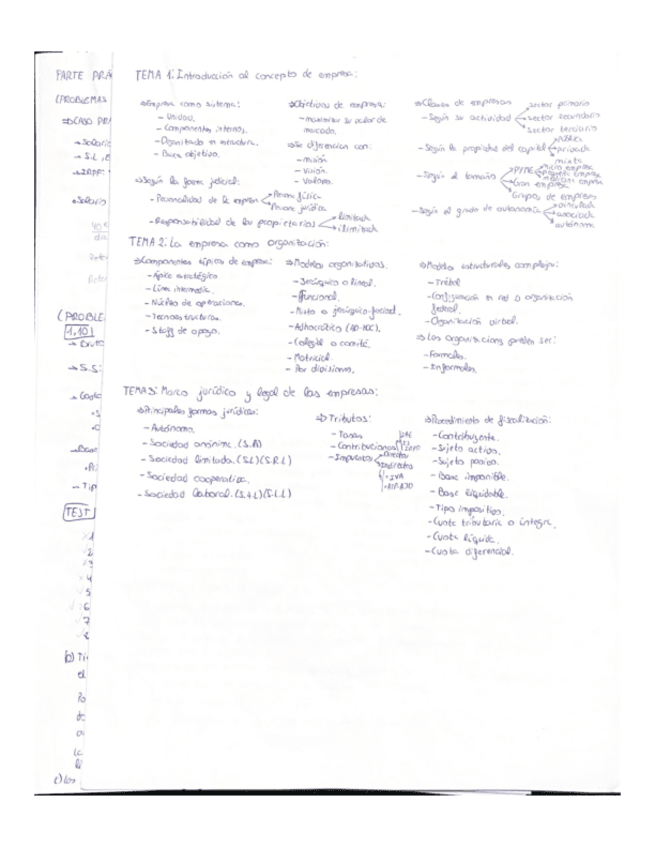 PARTE PRÁ
(PROBLEMAS
TEMA 1: Introducción al concepto de empresa:
⇒Empresa como sistema:
- Unidad.
- Componentes internos.
- Organizado en estructura.
- Busca objetivo.
⇒Según la forma judicial:
- Personalidad de la empresa
Persona física
Persona jurídica
- Responsabilidad de los propietarios
limitada
ilimitada
⇒Objetivos de empresa:
- maximizar su valor de
mercado.
⇒Se diferencian con:
- misión
- Visión.
- Valores.
⇒Clases de empresas
- Según su actividad
sector primario
sector secundario
sector terciario
- Según la propiedad del capital
pública
privada
mixta
- Según el tamaño
PYME
micro empresa
pequeña empresa
mediana empresa
Gran empresa
Grupos de empresas
- Según el grado de autonomía
vinculada
asociada
autónoma
TEMA 2: La empresa como organización:
⇒Componentes típicos de empresa:
- Ápice estratégico
- Línea intermedia.
- Núcleo de operaciones.
- Tecnoestructura.
- Staff de apoyo.
⇒Modelos organizativos:
- Jerárquico o lineal.
- Funcional.
- Mixto o jerárquico-funcional.
- Adhocrático (AD-HOC).
- Colegial o comité.
- Matricial.
- Por divisiones.
⇒Modelos estructurales complejos:
- Trébol
- Configuración en red o organización
federal.
- Organización virtual.
⇒Las organizaciones pueden ser:
- Formales.
- Informales.
TEMA 3: Marco jurídico y legal de las empresas:
⇒Principales formas jurídicas:
- Autónomo.
- Sociedad anónima. (S.A)
- Sociedad limitada. (S.L)(S.R.L)
- Sociedad cooperativa.
- Sociedad laboral. (S.A.L)(S.L.L)
⇒Tributos:
- Tasas
- Contribuciones
- Impuestos
Directos
Indirectos
IVA
⇒Procedimiento de fiscalización:
- Contribuyente.
- Sujeto activo.
- Sujeto pasivo.
- Base imponible.
- Base liquidable.
- Tipo impositivo.
- Cuota tributaria o íntegra.
- Cuota líquida.
- Cuota diferencial.
(PROBLE
1.10)
→ S.S:
TEST